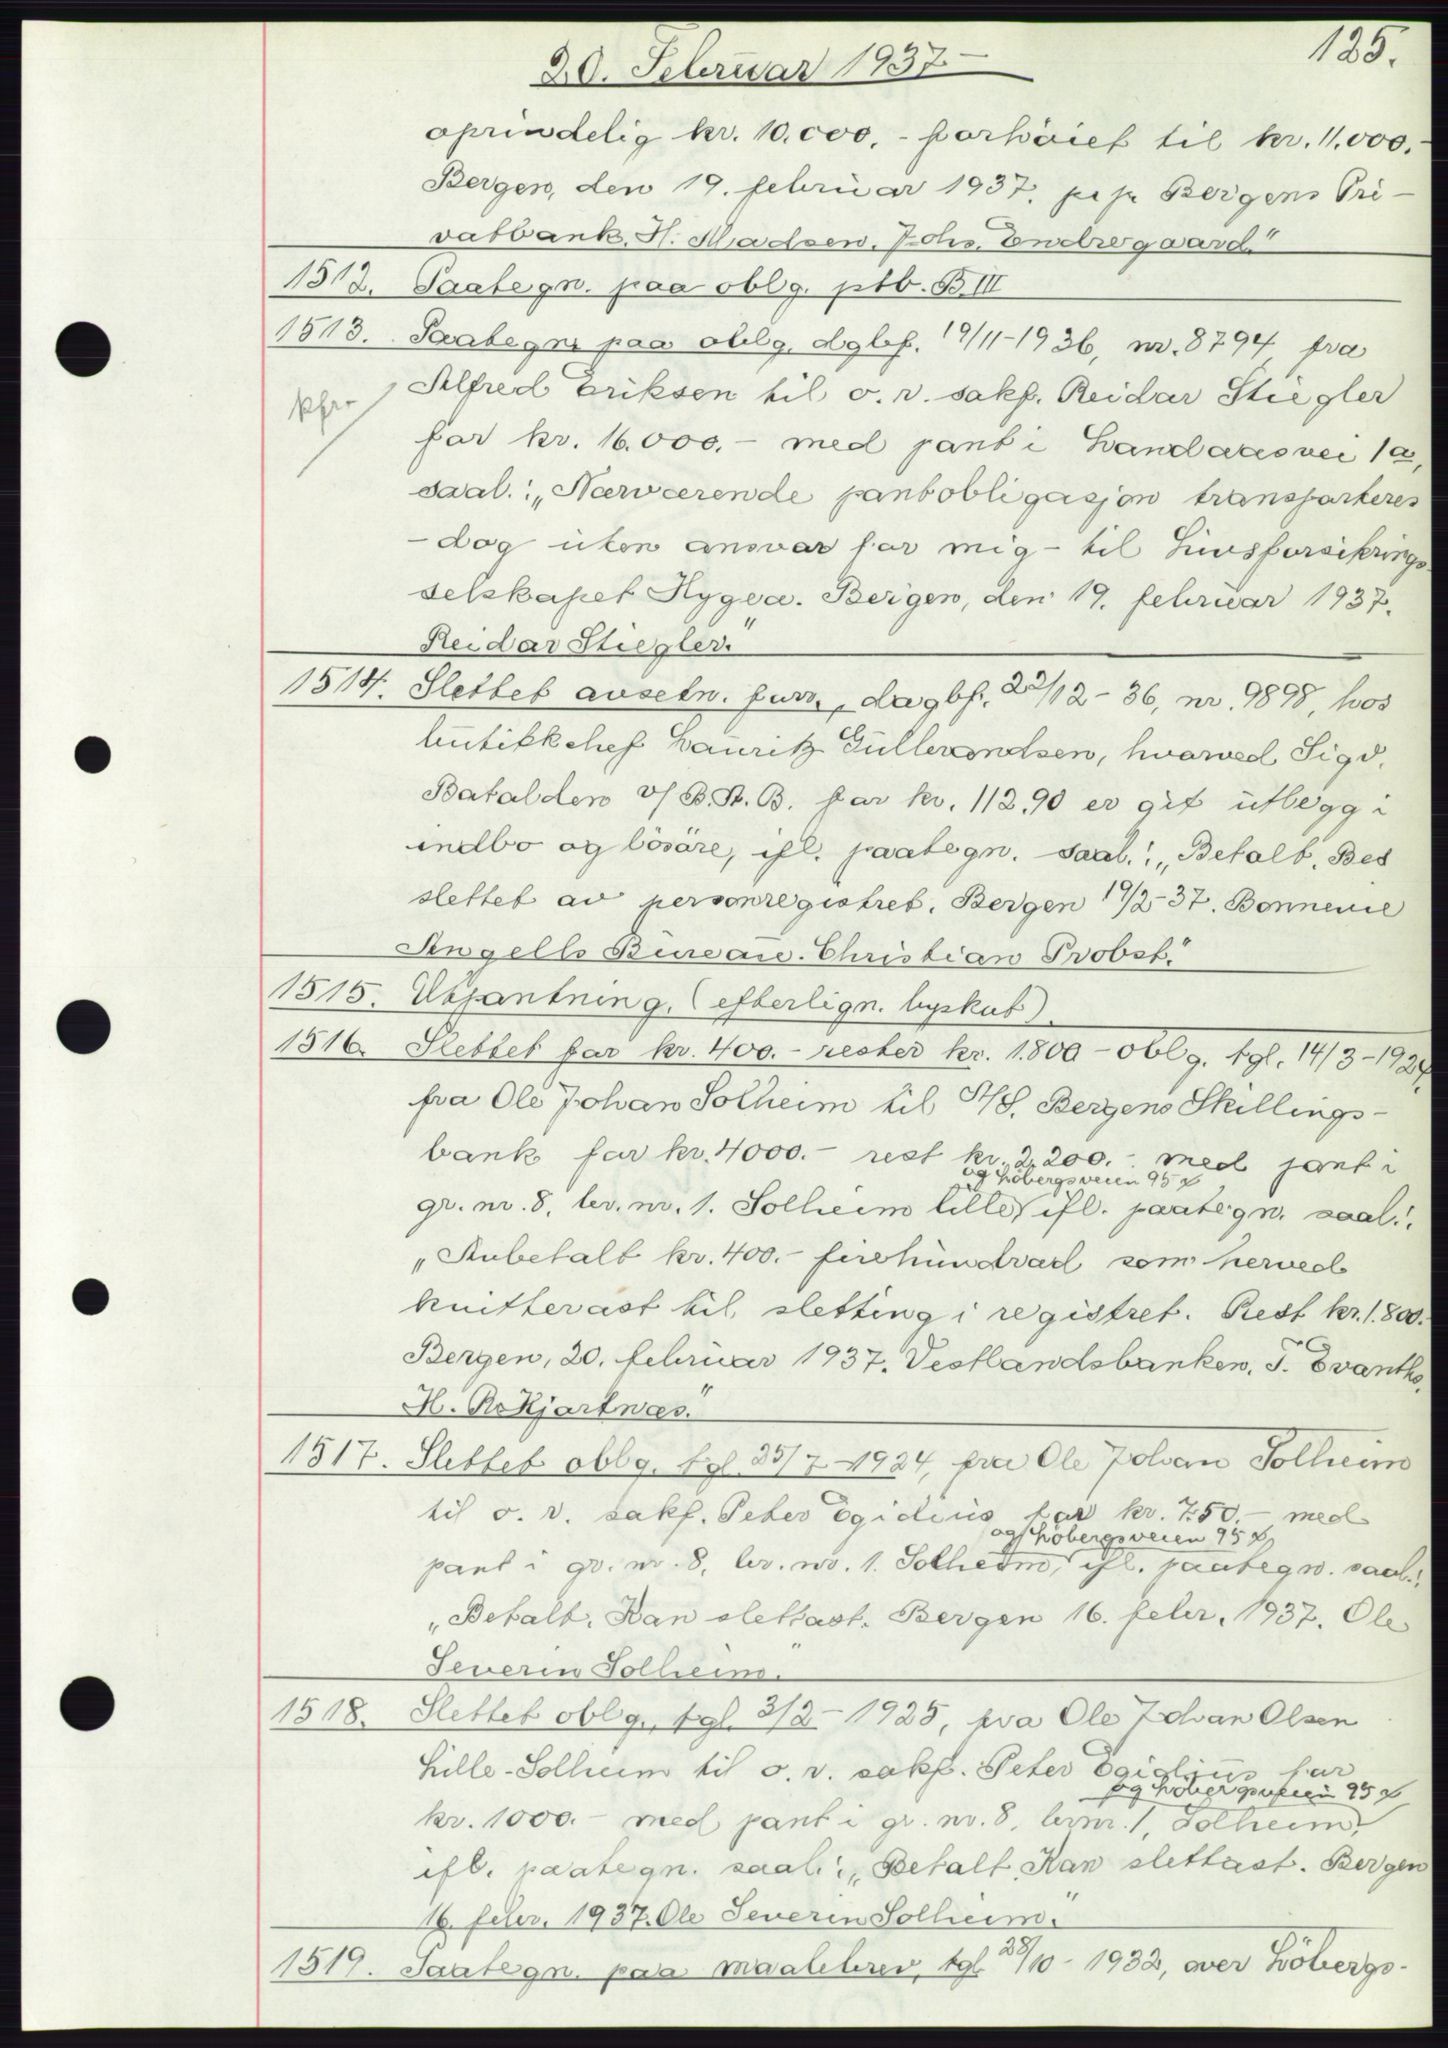 125.
20. Februar 1937 —
oprindelig kr. 10.000.- forhöiet til kr. 11.000.-
Bergen, den 19. februar 1937. pr pr Bergens Pri-
vatbank. H. Madsen. Johs. Endregaard."
1512. Paategn. paa oblg. ptb. B. III
1513. Paategn. paa oblg. dgbf. 19/11-1936, nr. 8794 fra
Alfred Eriksen til o. r. sakf. Reidar Stiegler
for kr. 16.000.- med pant i Landaasvei 1a,
saal.: „Nærværende pantobligasjon transporteres
- dog uten ansvar for mig - til Livsforsikrings-
selskapet Hygea. Bergen, den 19. februar 1937.
Reidar Stiegler."
1514. Slettet avsetn. forr., dagbf. 22/12-36, nr. 9898, hos
butikkchef Lauritz Gulbrandsen, hvorved Sigv.
Batalden v/ B. A. B. for kr. 112.90 er git utlegg i
indbo og lösöre, ifl. paategn. saal.: „Betalt. Bes
slettet av personregistret. Bergen 19/2-37. Bonnevie
Angells Bureau. Christian Probst."
1515. Utpantning. (efterlign. byskat).
1516. Slettet for kr. 400.- rester kr. 1.800 - oblg. tgl. 14/3-1924,
fra Ole Johan Solheim til A/S. Bergens Skillings-
bank for kr. 4000.- rest kr. 2.200.- med pant i
og Löbergsveien 95
gr. nr. 8, br. nr. 1. Solheim lille, ifl. paategn. saal.:
„Avbetalt kr. 400.- firehundrad som herved
kvitterast til sletting i registret. Rest kr. 1.800.
Bergen, 20. februar 1937. Vestlandsbanken. T. Evanth
H. R. Kjartnæs."
1517. Slettet oblg. tgl. 25/7-1924, fra Ole Johan Solheim
til o. r. sakf. Peter Egidius for kr. 750.- med
og Löbergsveien 95
pant i gr. nr. 8, br. nr. 1. Solheim, ifl. paategn. saal.:
„Betalt. Kan slettast. Bergen 16. febr. 1937. Ole
Severin Solheim."
1518. Slettet oblg., tgl. 3/2-1925, fra Ole Johan Olsen
Lille-Solheim til o. r. sakf. Peter Egidius for
og Löbergsveien 95
kr. 1000.- med pant i gr. nr. 8, br.nr. 1, Solheim,
ifl. paategn. saal.: „Betalt. Kan slettast. Bergen
16. febr. 1937. Ole Severin Solheim."
1519. Paategn. paa maalebrev, tgl. 28/10-1932, over Löbergs-